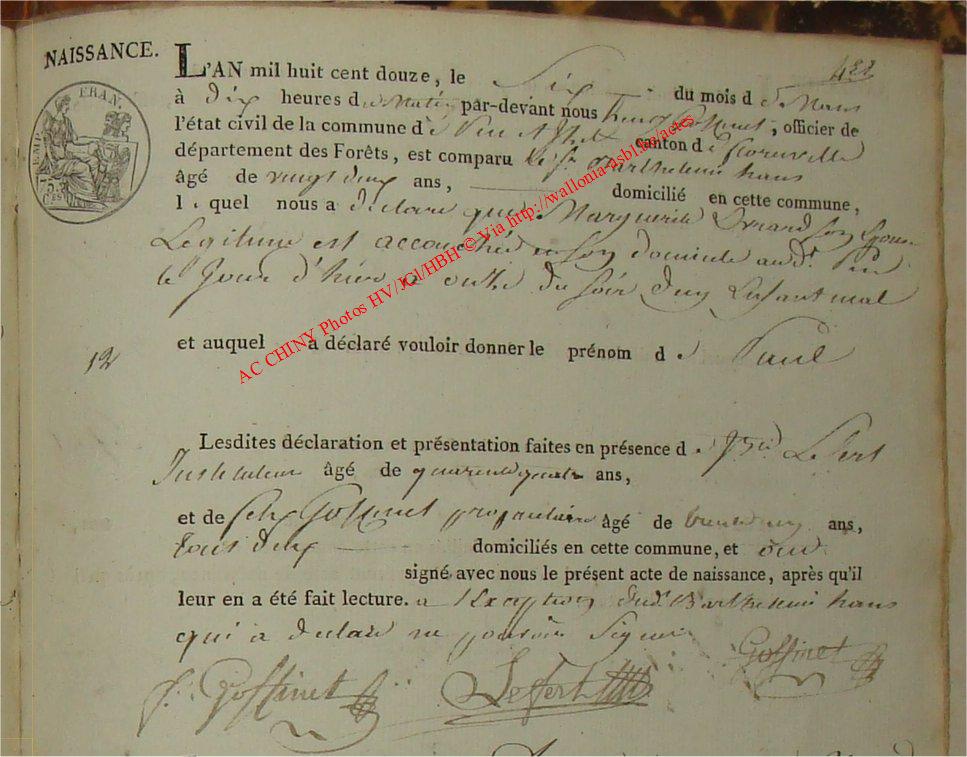 NAISSANCE.
L'AN mil huit cent douze, le Six du mois de Mars
à dix heures du Matin par-devant nous henry Goffinet, officier de
l'état civil de la commune de canton de florenville
département des Forêts, est comparu le Sr. Barthelemi hans
âgé de vingt deux ans, domicilié en cette commune,
lequel nous a déclaré que Marguerite Evrard son Epouse
Legitime est accouchée en son domicile audt.
le Jour d'hier a onze du soir d'un Enfant mal
et auquel a déclaré vouloir donner le prénom de Paul
12
Lesdites déclaration et présentation faites en présence de LeFert
Instituteur âgé de quarente quatre ans,
et de Goffinet propriétaire âgé de ans,
tous deux domiciliés en cette commune, et ont
signé avec nous le présent acte de naissance, après qu'il
leur en a été fait lecture. a l'Exception dud. Barthelemi hans
qui a declaré ne pouvoir Signer
Goffinet
J. Goffinet LeFert
EMP. FRAN.
75 C.es
AC CHINY Photos HV/JCl/HBH © Via http://wallonia-asbl.be/actes